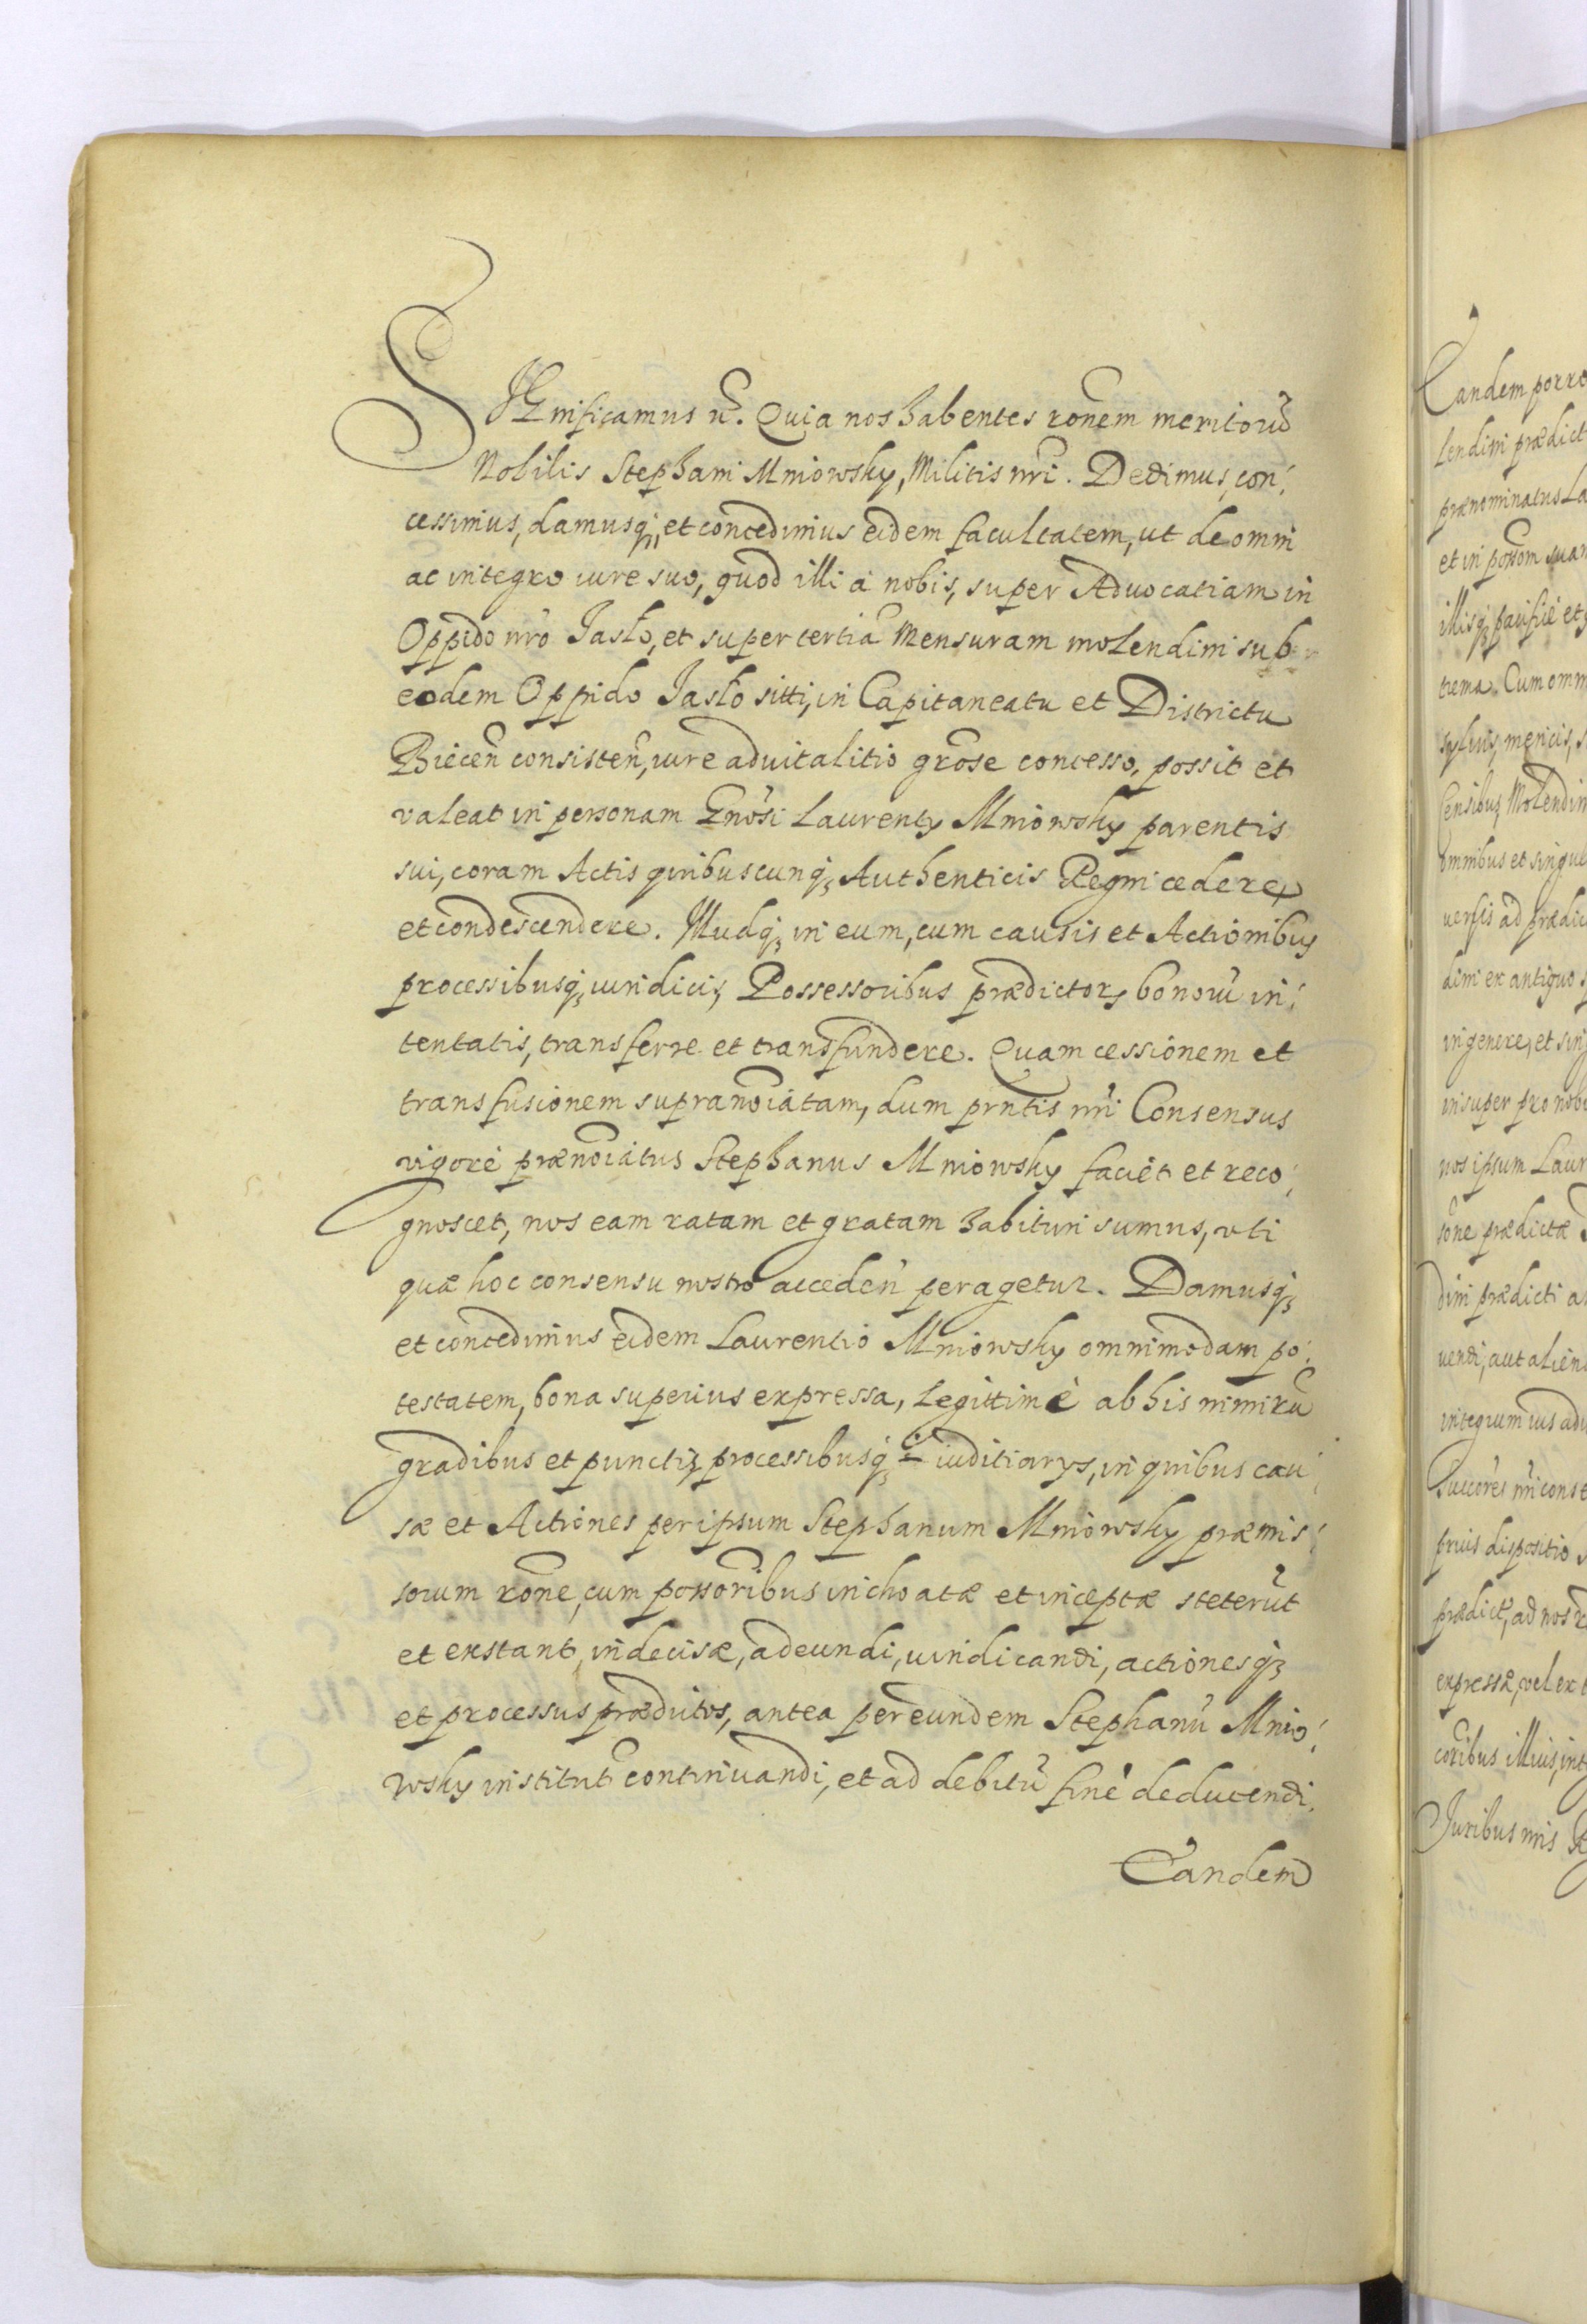 SIGnificamus nr̃. Quia nos habentes rõnem meritorũ
Nobilis Stephani Mniowsky, Militis nri. Dedimus, con:
cessimus, damusq, et concedimus eidem facultatem, ut de omni
ac integro iure suo, quod illi à nobis, super Advocatiam in
Oppido nrõ Jasło, et super tertiã Mensuram molendini sub
eodem Oppido Jasło sitti, in Capitaneatu et Districtu
Biecen̄ consisten̄, iure advitalitio grõse concesso, possit et
valeat in personam Gnõsi Laurenty Mniowsky parentis
sui, coram Actis quibuscunq₃ Authenticis Regni cedere
et condescendere. Illudq₃ in eum, cum causis et Actionibus
processibusq₃ iuridicis, Possessoribus prædictor, bonorũ in:
tentatis, transferre et transfundere. Quam cessionem et
transfusionem supranoĩatam, dum prntis nri Consensus
vigore prænoĩatus Stephanus Mniowsky faciet et reco:
gnoscet, nos eam ratam et gratam habituri sumus, uti
quæ hoc consensu nostro acceden̄ peragetur. Damusq₃
et concedimus eidem Laurentio Mniowsky omnimodam po:
testatem, bona superius expressa, legittimè ab his nimirũ
gradibus et punctis, processibusq₃ iuditiarys, in quibus cau:
sæ et Actiones per ipsum Stephanum Mniowsky præmis:
sorum rõne, cum possoribus inchoatæ et inceptæ steterũt
et exstant, indecisæ, adeundi, iuridicandi, actionesq₃
et processus præductos, antea per eundem Stephanũ Mnio:
wsky institut̃ continuandi, et ad debitũ finē deducendi.
Eandem
Eandem porro
lendini prædict
prænominatus La
et in possom suam
illisq₃ pacificè et
trema. Cum omn
sylvis, mericis, s
Censibus, Molendin
omnibus et singul
versis ad prædic
dini ex antiquo s
in genere, et sing
insuper pro nobi
nos ipsum Laur
sone prædictæ
dini prædicti a
vendi, aut alien
integrum ius adv
Succores nri conse
prius dispositio
prædict, ad nos
expressa, vel ex
coribus illius, int
Juribus nris